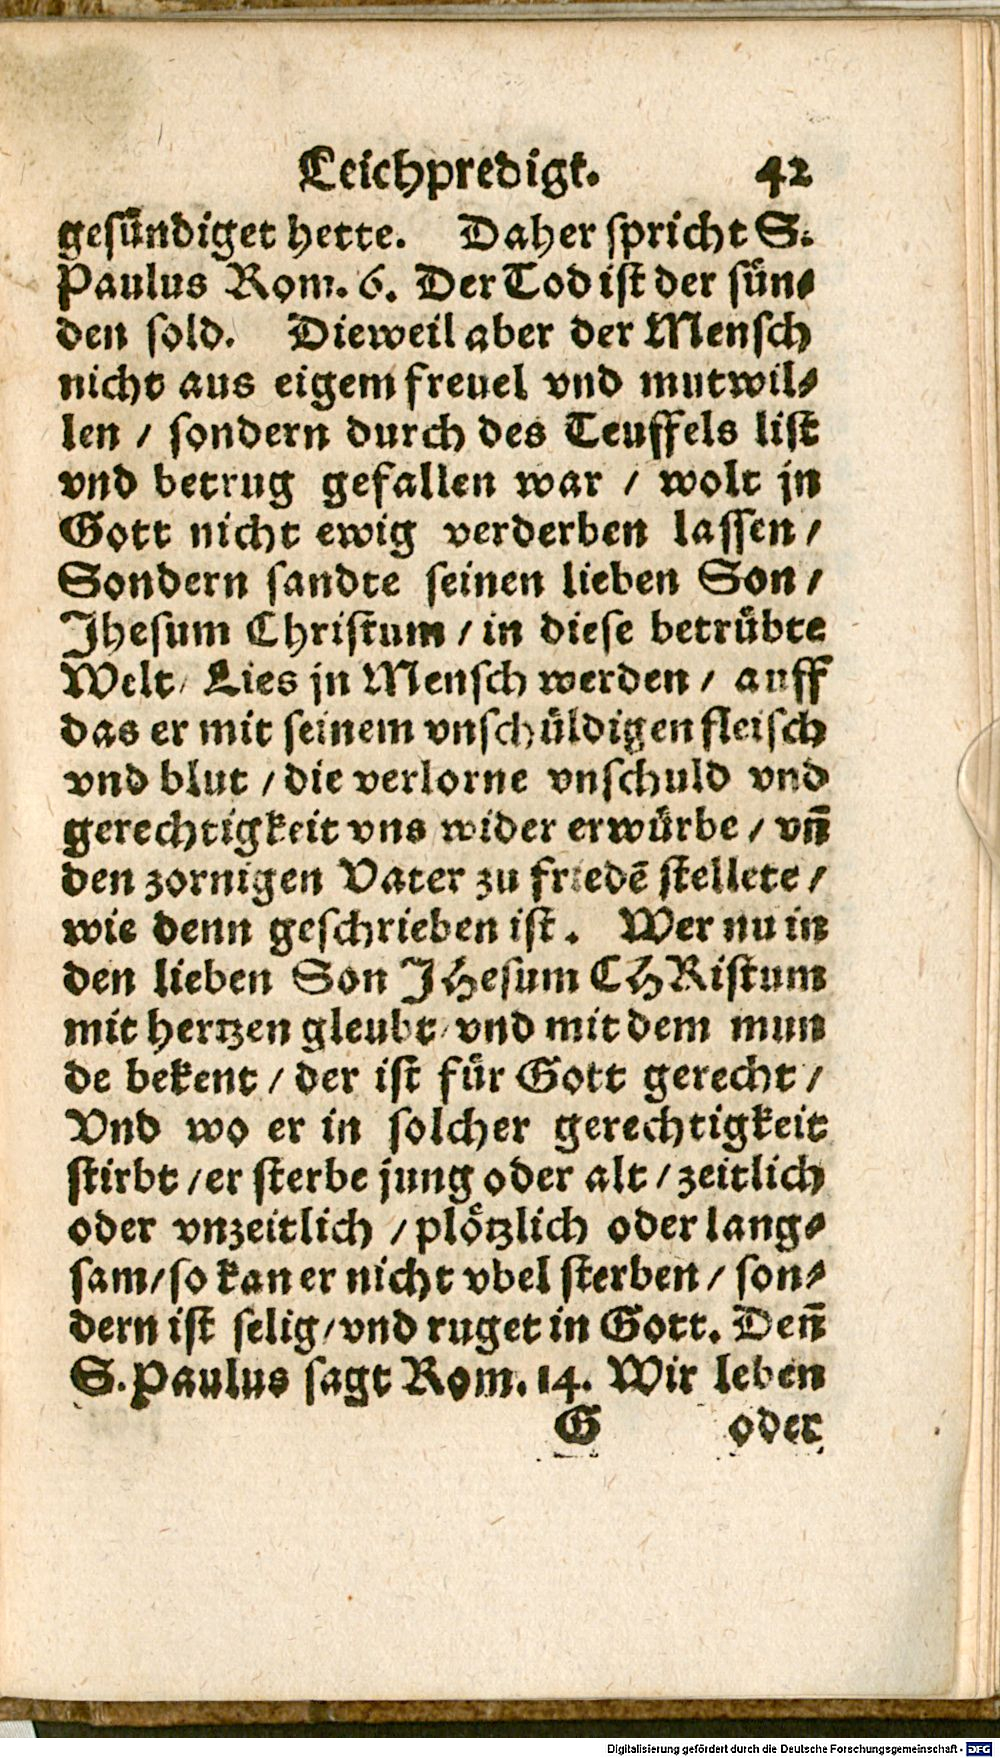 Leichpredigt. 42
gesündiget hette. Daher spricht S.
Paulus Rom. 6. Der Tod ist der sün⸗
den sold. Dieweil aber der Mensch
nicht aus eigem freuel vnd mutwil⸗
len / sondern durch des Teuffels list
vnd betrug gefallen war / wolt jn
Gott nicht ewig verderben lassen /
Sondern sandte seinen lieben Son /
Jhesum Christum / in diese betrübte
Welt / Lies jn Mensch werden / auff
das er mit seinem vnschüldigen fleisch
vnd blut / die verlorne vnschuld vnd
gerechtigkeit vns wider erwürbe / vn̄
den zornigen Vater zu friedē stellete /
wie denn geschrieben ist. Wer nu in
den lieben Son JHesum CHRistum
mit hertzen gleubt / vnd mit dem mun
de bekent / der ist für Gott gerecht /
Vnd wo er in solcher gerechtigkeit
stirbt / er sterbe jung oder alt / zeitlich
oder vnzeitlich / plötzlich oder lang⸗
sam / so kan er nicht vbel sterben / son⸗
dern ist selig / vnd ruget in Gott. Den̄
S. Paulus sagt Rom. 14. Wir leben
G oder
Digitalisierung gefördert durch die Deutsche Forschungsgemeinschaft - DFG